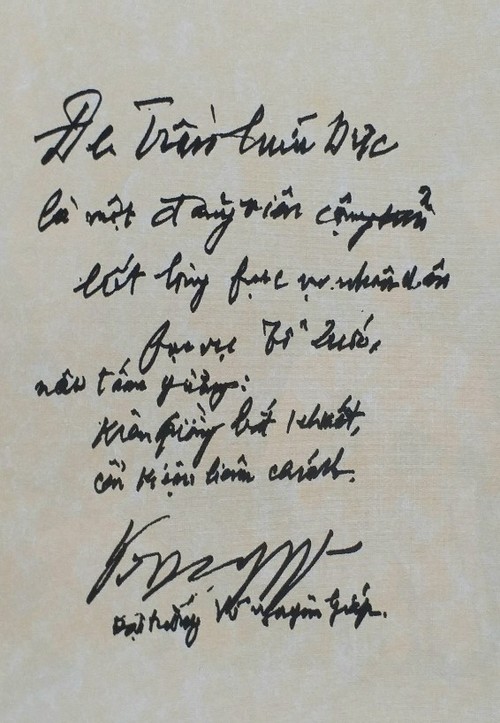 Đ/c Trần Hữu Dực
là một đảng viên cộng sản
hết lòng phục vụ nhân dân
phục vụ Tổ Quốc,
nêu tấm gương:
Kiên cường bất khuất,
cần kiệm liêm chính.
Đại tướng Võ Nguyên Giáp.